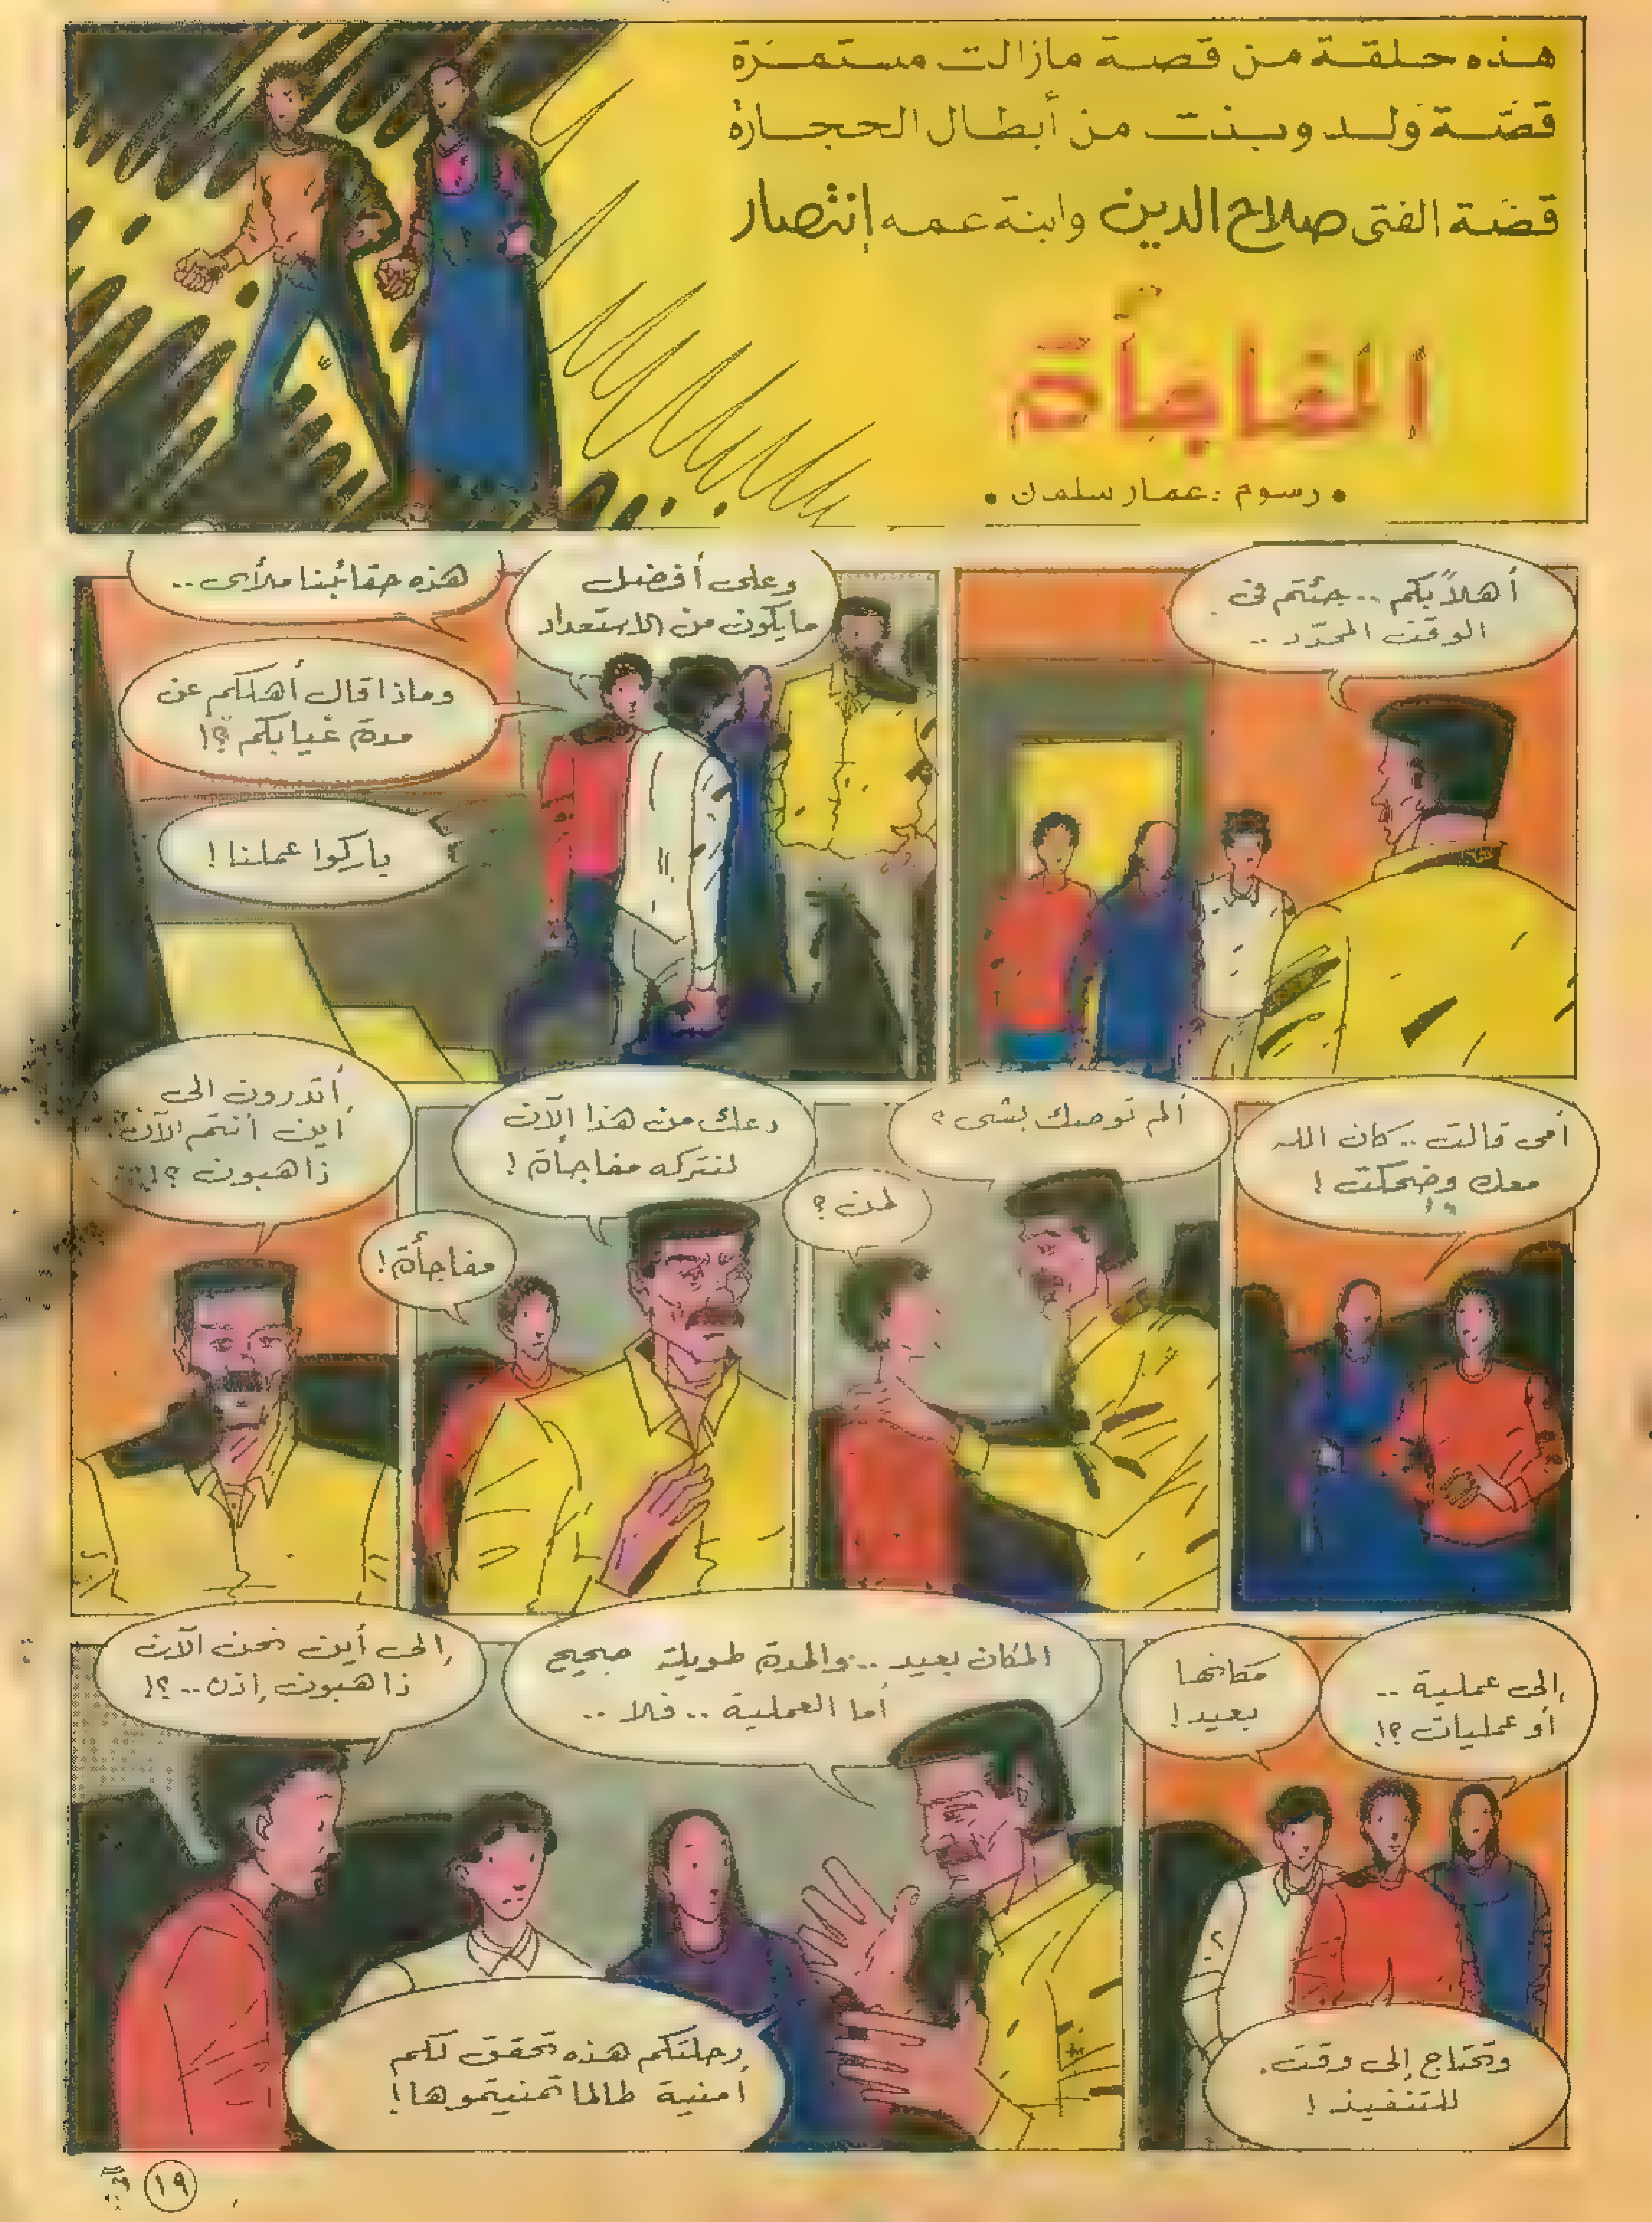 هذه حلقة من قصة مازالت مستمرة
قصّة ولد وبنت من أبطال الحجارة
قصّة الفتى صلاح الدين وابنة عمه إنتصار
المفاجأة
• رسوم : عمار سلمان •
أهلاً بكم .. جئتم في
الوقت المحدّد ..
وعلى أفضل
مايكون من الاستعداد
هذه حقائبنا ملأى ..
وماذا قال أهلكم عن
مدة غيابكم ؟!
باركوا عملنا !
أمي قالت .. كان الله
معك وضحكت !
ألم توصك بشى ؟
لمن ؟
دعك من هذا الآن
لنتركه مفاجأة !
مفاجأة !
أتدرون الى
أين أنتم الآن
ذاهبون ؟!
إلى عملية ..
أو عمليات ؟!
مكانها
بعيد !
وتحتاج إلى وقت
للتنفيذ !
المكان بعيد .. والمدة طويلة صحيح
أما العملية .. فلا ..
إلى أين نحن الآن
ذاهبون إذن .. ؟!
رحلتكم هذه تحقق لكم
أمنية طالما تمنيتموها !
١٩